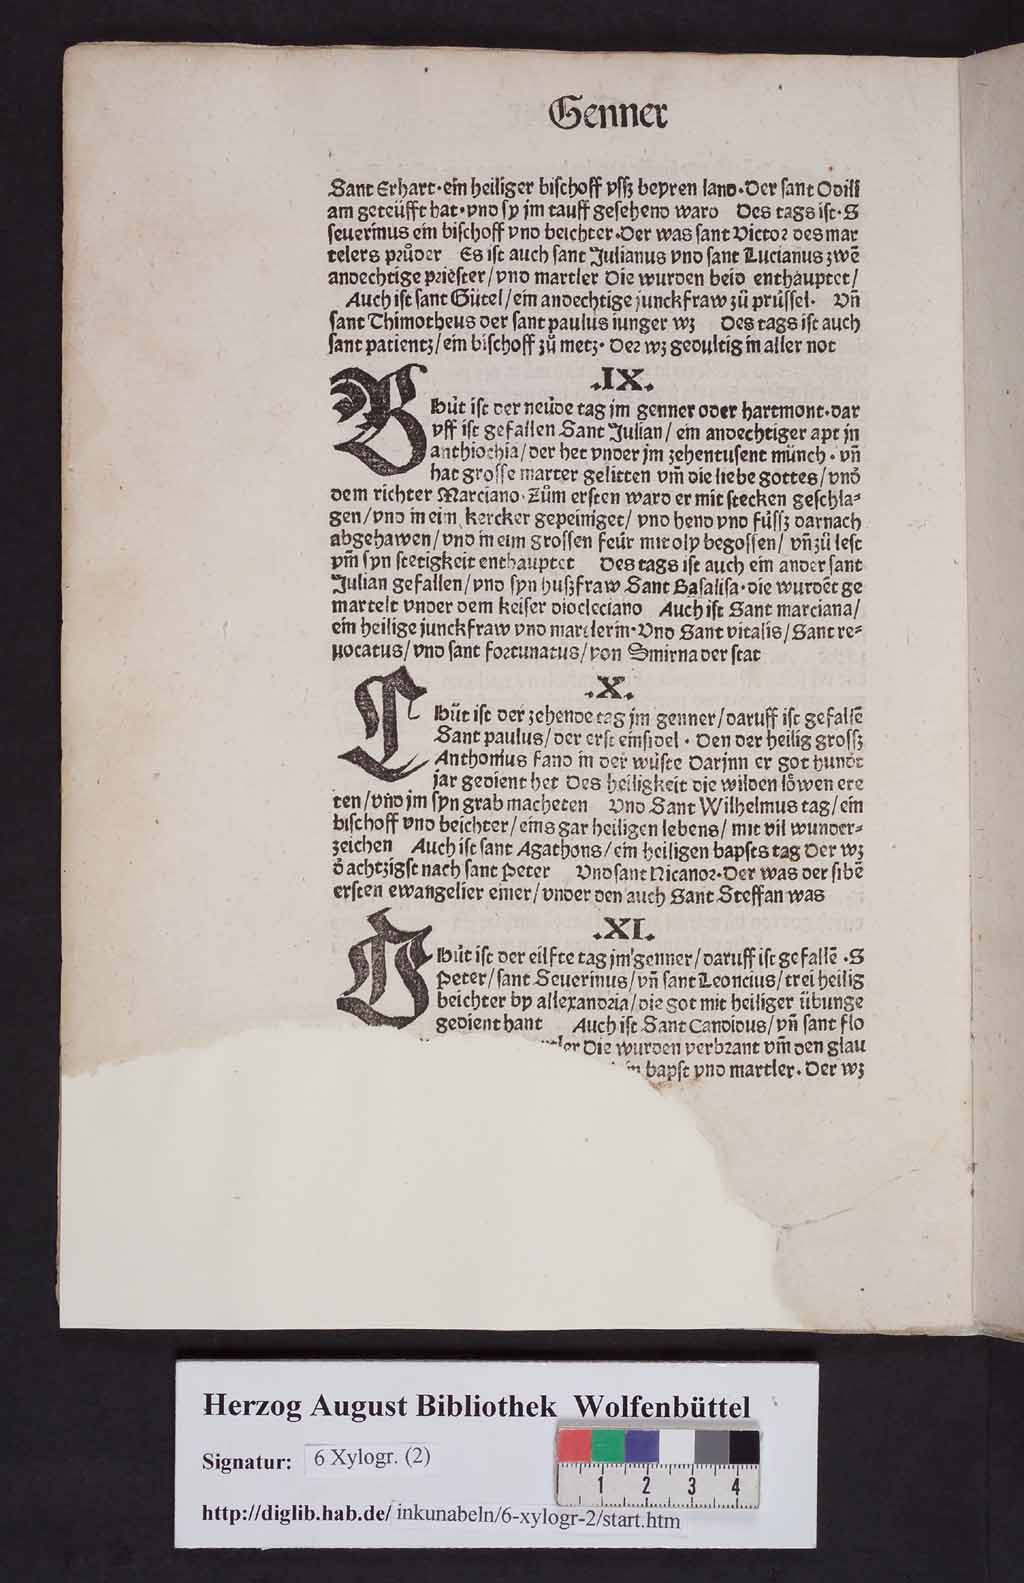 Genner
Sant Erhart·ein heiliger bischoff vssz beyren land·Der sant Odili
am geteüfft hat·vnd sy jm tauff gesehend ward Des tags ist·S
seuerinus ein bischoff vnd beichter·Der was sant Victor des mar
telers průder Es ist auch sant Julianus vnd sant Lucianus zwē
andechtige priester/vnd martler Die wurden beid enthauptet/
Auch ist sant Gůtel/ein andechtige junckfraw zů prüssel· Vn̄
sant Thimotheus der sant paulus iunger wz Des tags ist auch
sant patientz/ein bischoff zů metz· Der wz gedultig in aller not
.IX.
B Hüt ist der neüde tag jm genner oder hartmont·dar
vff ist gefallen Sant Julian/ein andechtiger apt jn
anthiochia/der het vnder jm zehentusent münch·vn̄
hat grosse marter gelitten vm̄ die liebe gottes/vnd
dem richter Marciano·Zům ersten ward er mit stecken geschla⸗
gen/vnd in eim kercker gepeiniget/vnd hend vnd füssz darnach
abgehawen/vnd in eim grossen feür mit oly begossen/vn̄ zů lest
vm̄ syn stetigkeit enthauptet Des tags ist auch ein ander sant
Julian gefallen/vnd syn huszfraw Sant Basalisa·die wurdēt ge
martelt vnder dem keiser diocleciano Auch ist Sant marciana/
ein heilige junckfraw vnd marterin·Vnd Sant vitalis/Sant re⸗
uocatus/vnd sant fortunatus/von Smirna der stat
.X.
C Hüt ist der zehende tag jm genner/daruff ist gefallē
Sant paulus/der erst einsidel· Den der heilig grossz
Anthonius fand in der wüste Darjnn er got hundt
jar gedient het Des heiligkeit die wilden löwen ere
ten/vn̄d jm syn grab macheten Vnd Sant Wilhelmus tag/ein
bischoff vnd beichter/eins gar heiligen lebens/mit vil wunder⸗
zeichen Auch ist sant Agathons/ein heiligen bapsts tag Der wz
d̕ achtzigst nach sant Peter Vnd sant Nicanor·Der was der sibē
ersten ewangelier einer/vnder den auch Sant Steffan was
.XI.
D Hüt ist der eilfte tag jm genner/daruff ist gefallē·S
Peter/sant Seuerinus/vn̄ sant Leoncius/trei heilig
beichter by allexandria/die got mit heiliger übunge
gedient hant Auch ist Sant Candidus/vn̄ sant flo
Die wurden verbrant vm̄ den glau
bapst vnd martler. Der wz
Herzog August Bibliothek Wolfenbüttel
Signatur: 6 Xylogr. (2)
1 2 3 4
http://diglib.hab.de/ inkunabeln/6-xylogr-2/start.htm